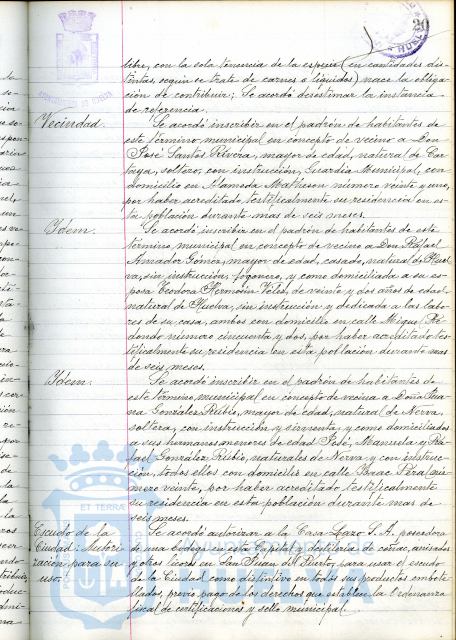 20
libre, con la sola tenencia de la especie (en cantidades dis-
tintas, según se trate de carnes o líquidos) nace la obliga-
ción de contribuir; Se acordó desestimar la instancia
de referencia.
Vecindad.
Se acordó inscribir en el padrón de habitantes de
este término municipal en concepto de vecino a Don
José Santos Rivera, mayor de edad, natural de Car-
taya, soltero, con instrucción, Guardia Municipal, con
domicilio en Alameda Matheson número veinte y uno,
por haber acreditado testificalmente su residencia en es-
ta población durante mas de seis meses.
Ydem.
Se acordó inscribir en el padrón de habitantes de este
término municipal en concepto de vecino a Don Rafael
Amador Gómez, mayor de edad, casado, natural de Huel-
va, sin instrucción, fogonero, y como domiciliada a su es-
posa Teodora Hermosin Velez, de veinte y dos años de edad,
natural de Huelva, sin instrucción y dedicada a las labo-
res de su casa, ambos con domicilio en calle Miguel Re-
dondo número cincuenta y dos, por haber acreditado tes-
tificalmente su residencia en esta población durante mas
de seis meses.
Ydem.
Se acordó inscribir en el padrón de habitantes de
este término municipal en concepto de vecina a Doña Jua-
na González Rubio, mayor de edad, natural de Nerva,
soltera, con instrucción y sirvienta, y como domiciliados
a sus hermanos menores de edad José, Manuela y Ra-
fael González Rubio, naturales de Nerva y con instruc-
ción, todos ellos con domicilio en calle Isaac Peral nú-
mero veinte, por haber acreditado testificalmente
su residencia en esta población durante mas de
seis meses.
Escudo de la
Ciudad: Autori-
zación para su
uso.
Se acordó autorizar a la Casa Lazo S. A. poseedora
de una Bodega en esta Capital y destilería de coñac, anisados
y otros licores en San Juan del Puerto, para usar el escudo
de la Ciudad como distintivo en todos sus productos embote-
llados, previo pago de los derechos que establece la Ordenanza
fiscal de certificaciones y sello municipal.
ET TERRÆ
HUELVA